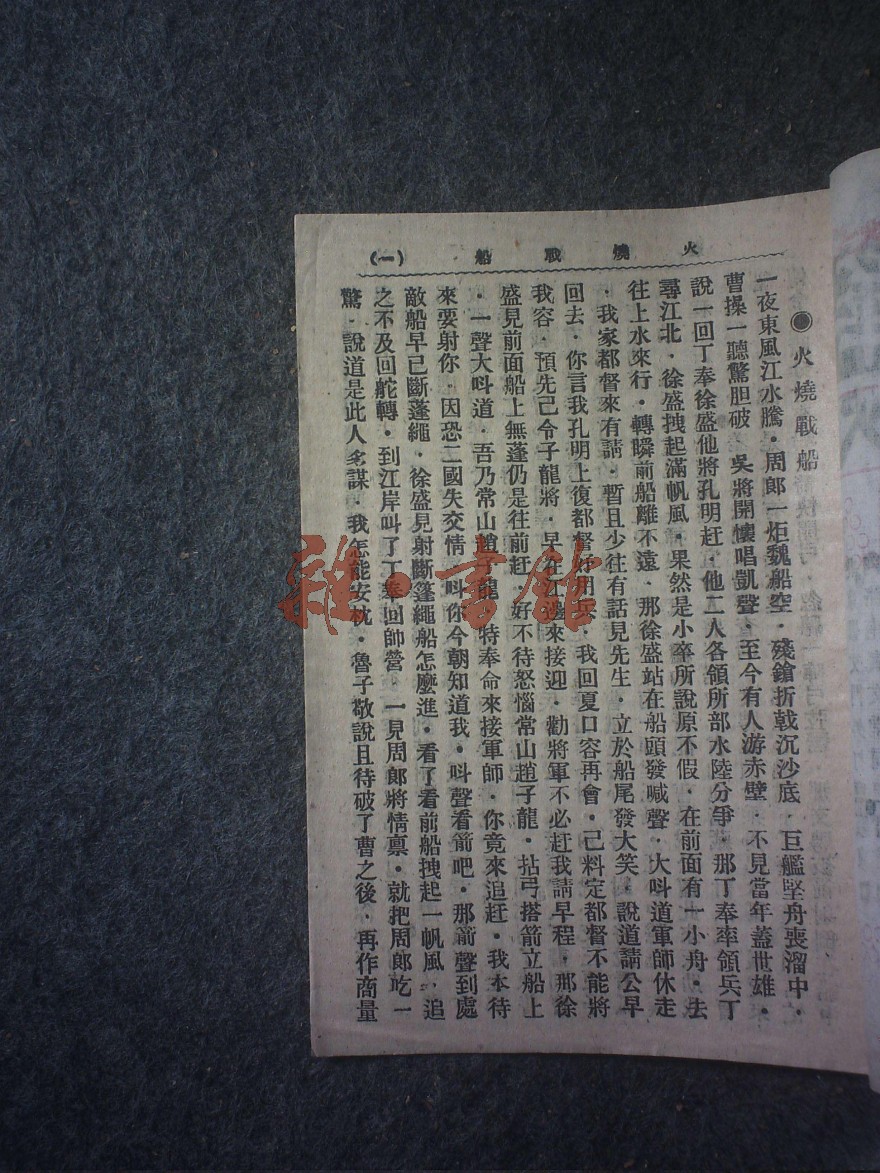 火燒戰船 (一)
●火燒戰船
一夜東風江水騰．周郎一炬魏船空．殘鎗折戟沉沙底．巨艦堅舟喪溜中．
曹操一聽驚胆破　吳將開懷唱凱聲．至今有人游赤壁．不見當年蓋世雄．
說一回丁奉徐盛他將孔明赶．他二人各領所部水陸分爭．那丁奉率領兵丁
尋江北．徐盛拽起滿帆風．果然是小卒所說原不假．在前面有一小舟．去
往上水來行．轉瞬前船離不遠．那徐盛站在船頭發喊聲．大呌道軍師休走
．我家都督來有請．暫且少往有話見先生．立於船尾發大笑．說道請公早
回去．你言我孔明上復都督好用兵．我回夏口容再會．己料定都督不能將
我容．預先己令子龍將．早在江邊來接迎．勸將軍不必赶我請早程．那徐
盛見前面船上無蓬仍是往前赶．好不待怒惱常山趙子龍．拈弓搭箭立船上
．一聲大呌道．吾乃常山趙子龍．特奉命來接軍師．你竟來追赶．我本待
來要射你．因恐二國失交情．呌你今朝知道我．呌聲看箭吧．那箭聲到處
敵船早已斷蓬繩．徐盛見射斷篷繩船怎麼進．看了看前船拽起一帆風．追
之不及回舵轉．到江岸叫了丁奉回帥營．一見周郎將情禀．就把周郎吃一
驚．說道是此人多謀．我怎能安枕．魯子敬說且待破了曹之後．再作商量
雜·書館